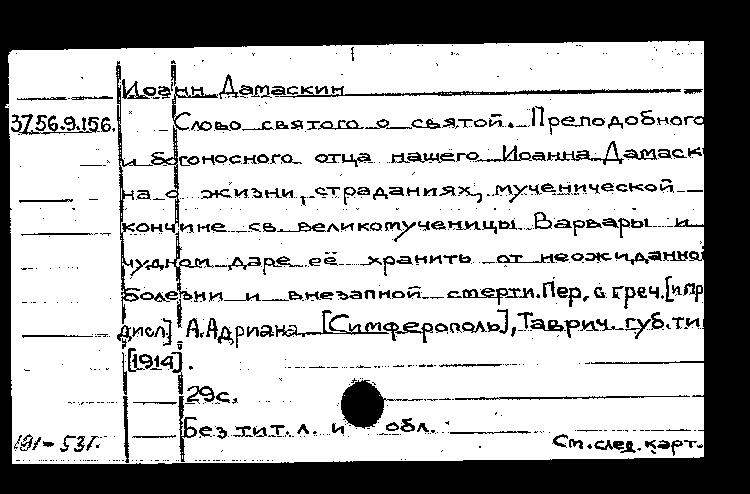 Иоанн Дамаскин
37.56.9.156. Слово святого о святой. Преподобного
и богоносного отца нашего Иоанна Дамаск
на о жизни, страданиях, мученической
кончине св. великомученицы Варвары и
чудном даре её хранить от неожиданной
болезни и внезапной смерти. Пер. с греч. [и пр
дисл] А. Адриана. [Симферополь], Таврич. губ. ти
[1914].
29с.
Без тит. л. и обл.
191-531. См. след. карт.